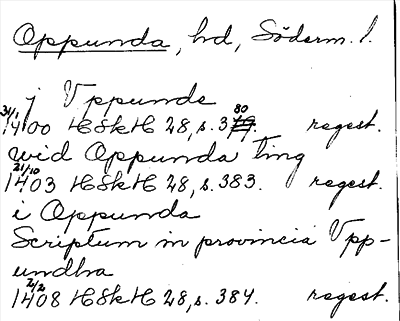 Oppunda, hd, Söderm. l.
j Vppunde
31/1 1400 HSkH 28, s. 380. regest.
wid Oppunda ting
21/10 1403 HSkH 28, s. 383. regest.
i Oppunda
Scriptum in provincia Vpp-
undha
2/2 1408 HSkH 28, s. 384. regest.